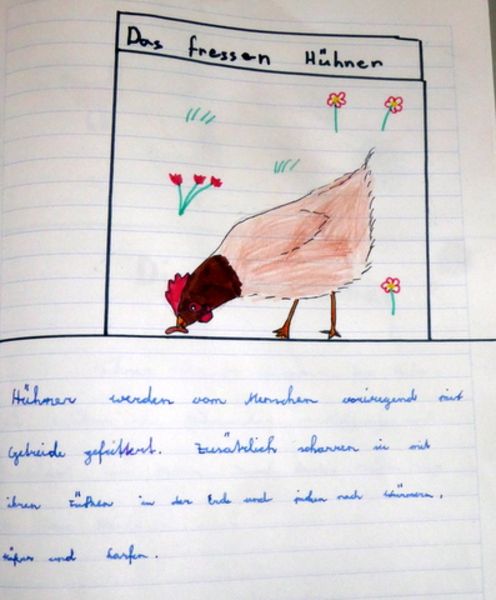 Das fressen Hühner
Hühner werden vom Menschen vorwiegend mit
Getreide gefüttert. Zusätzlich scharren sie mit
ihren Füßen in der Erde und suchen nach Würmern,
Käfern und